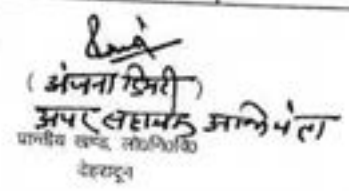 ( अंजना डिमरी )
अपर सहायक अभियंता
प्रान्तीय खण्ड, लो०नि०वि०
देहरादून